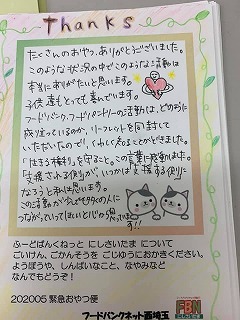 Thanks
たくさんのおやつ、ありがとうございました。
このような状況の中でこのような活動は
本当にありがたいと思います。
子供達もとても喜んでいます。
フードバンク、フードパントリーの活動は、どのように
成り立っているのか、リーフレットを同封して
いただいたので、くわしく知ることができました。
「生きる権利」を守ること。この言葉に感動しました。
「支援される側」が、いつかは「支援する側」に
なろうと私は思います。
この活動が少しでも多くの人に
つながっていってほしいと心から思っています!!
ふーどばんくねっと にしさいたま について
ごいけん、ごかんそうを ごじゆうにおかきください。
ようぼうや、しんぱいなこと、なやみなど
なんでもどうぞ!
202005 緊急おやつ便
フードバンクネット西埼玉
FBN